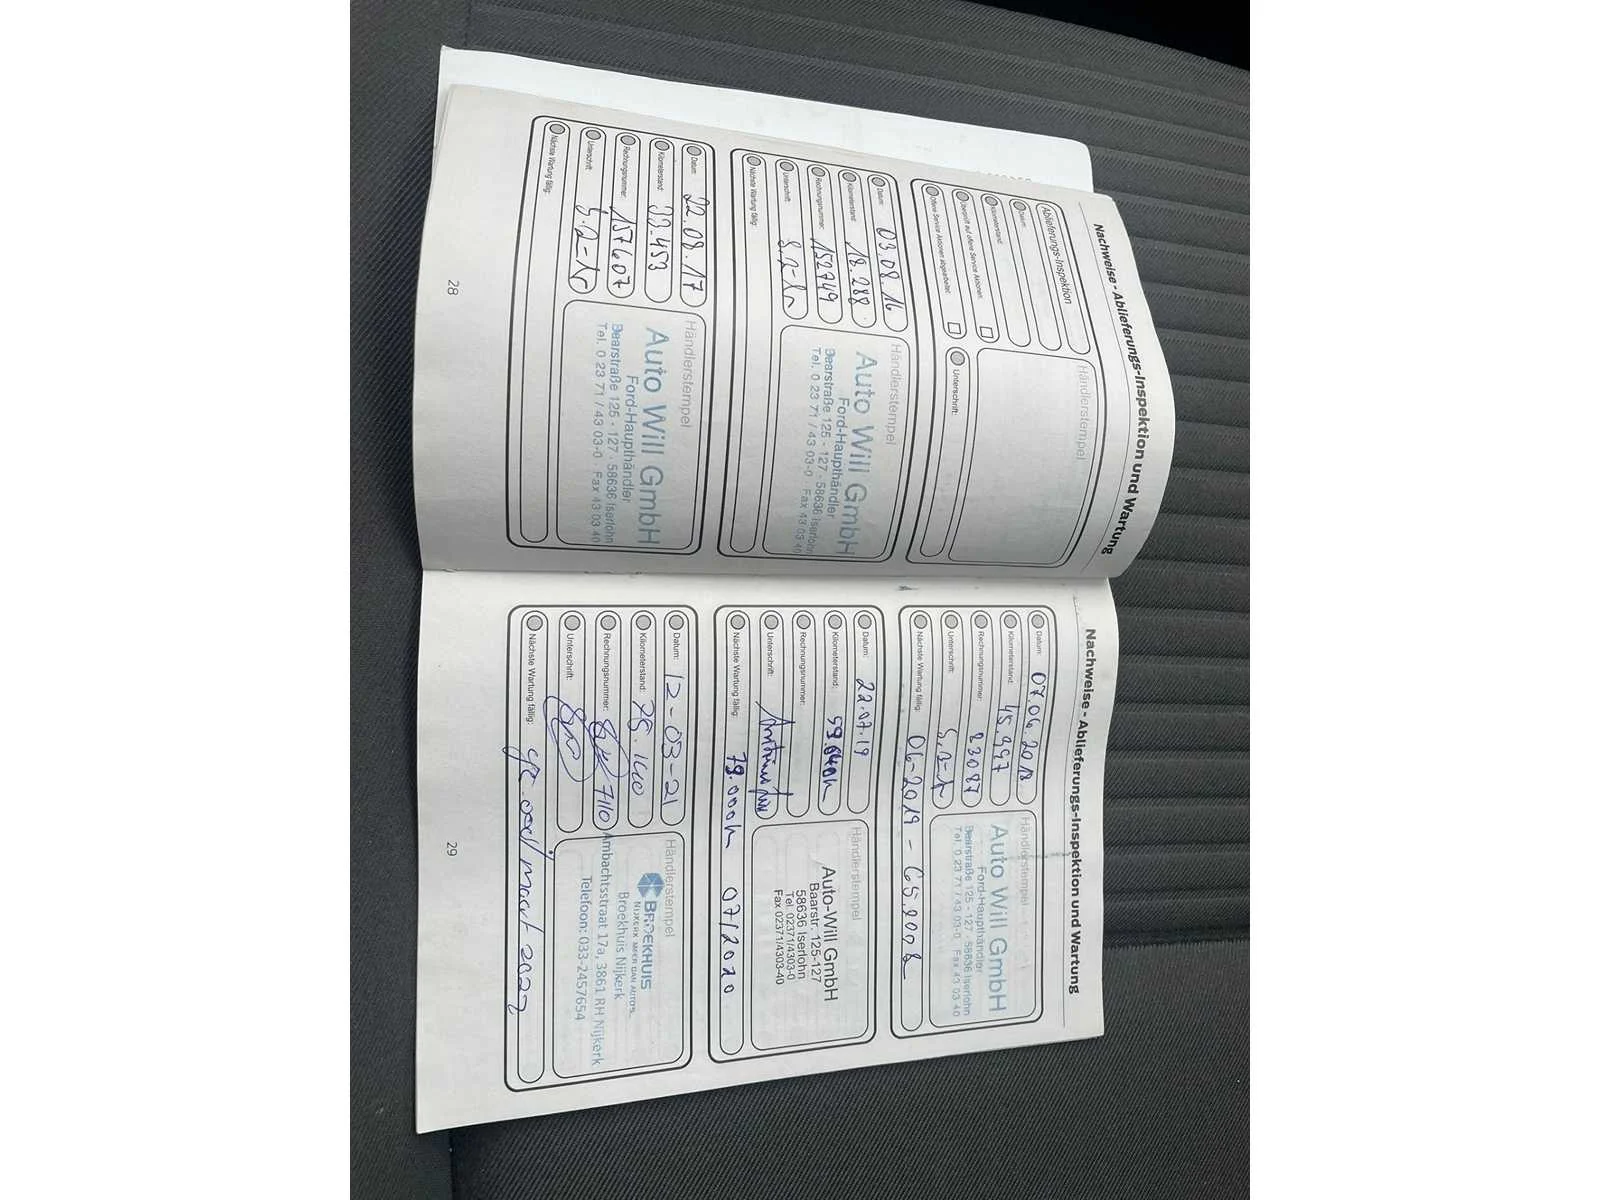 Nachweise - Ablieferungs-Inspektion und Wartung
Ablieferungs-Inspektion
Datum:
Kilometerstand:
Überprüft auf offene Service Aktionen:
Offene Service Aktionen abgearbeitet:
Händlerstempel
Unterschrift:
Datum: 03.08.16
Kilometerstand: 18.288
Rechnungsnummer: 152749
Unterschrift:
Nächste Wartung fällig:
Händlerstempel
Auto Will GmbH
Ford-Haupthändler
Baarstraße 125 - 127 · 58636 Iserlohn
Tel. 0 23 71 / 43 03-0 Fax 43 03 40
Datum: 22.08.17
Kilometerstand: 33.453
Rechnungsnummer: 157607
Unterschrift:
Nächste Wartung fällig:
Händlerstempel
Auto Will GmbH
Ford-Haupthändler
Baarstraße 125 - 127 · 58636 Iserlohn
Tel. 0 23 71 / 43 03-0 Fax 43 03 40
28
Nachweise - Ablieferungs-Inspektion und Wartung
Datum: 07.06.2018
Kilometerstand: 45.997
Rechnungsnummer: 23087
Unterschrift:
Nächste Wartung fällig: 06-2019 - 65.000
Händlerstempel
Auto Will GmbH
Ford-Haupthändler
Baarstraße 125 - 127 · 58636 Iserlohn
Tel. 0 23 71 / 43 03-0 Fax 43 03 40
Datum: 22.07.19
Kilometerstand: 59.640km
Rechnungsnummer:
Unterschrift:
Nächste Wartung fällig: 79.000km 07/2020
Händlerstempel
Auto-Will GmbH
Baarstr. 125-127
58636 Iserlohn
Tel. 02371/4303-0
Fax 02371/4303-40
Datum: 12-03-21
Kilometerstand: 75.140
Rechnungsnummer: 7110
Unterschrift:
Nächste Wartung fällig: maart 2022
Händlerstempel
BROEKHUIS
NIJKERK MEER DAN AUTO'S
Broekhuis Nijkerk
Ambachtsstraat 17a, 3861 RH Nijkerk
Telefoon: 033-2457654
29